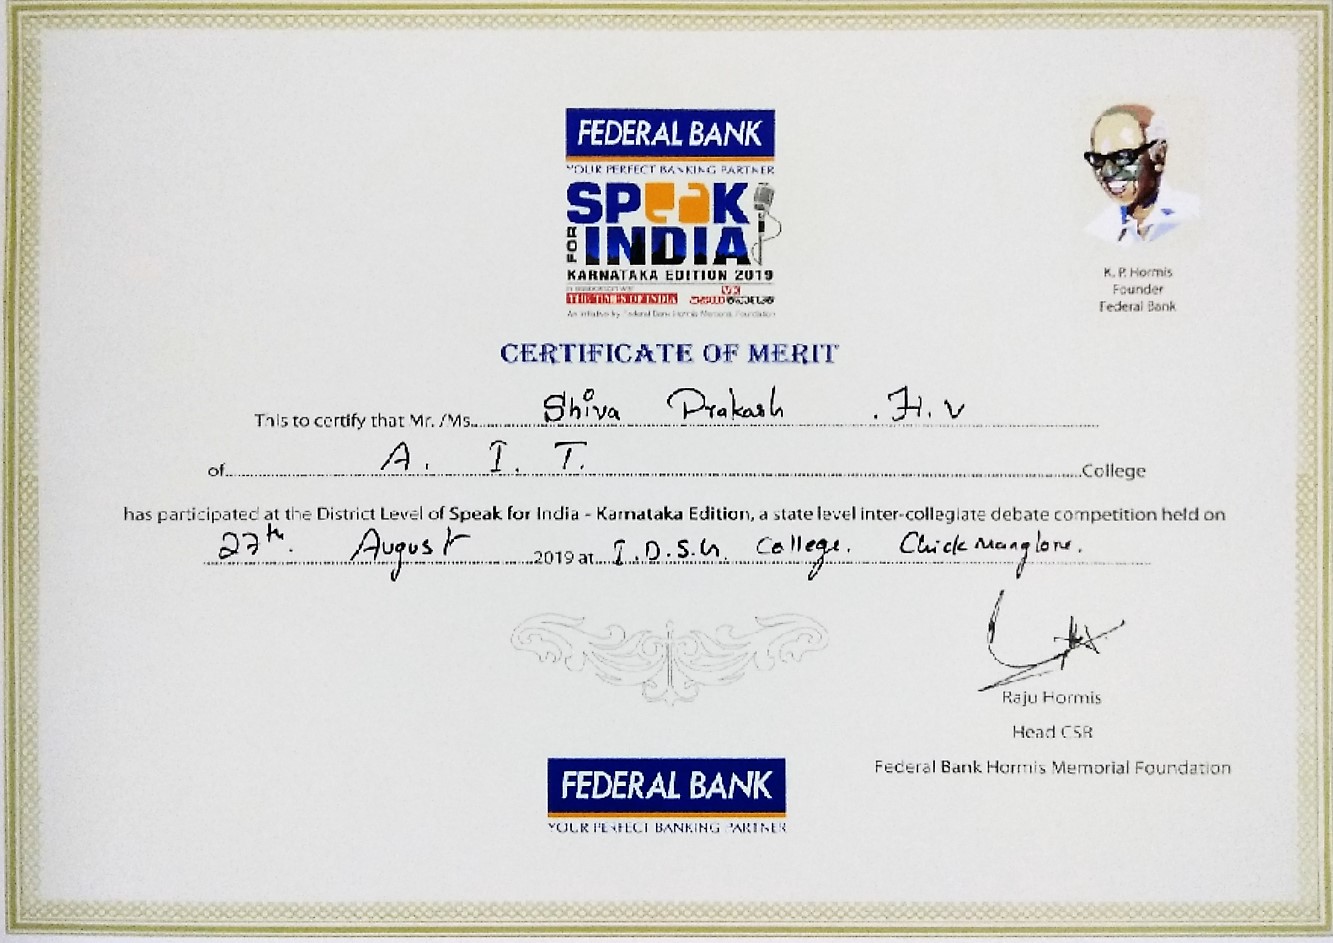 FEDERAL BANK
YOUR PERFECT BANKING PARTNER
SPEAK
FOR
INDIA
KARNATAKA EDITION 2019
THE TIMES OF INDIA VK
An initiative by Federal Bank Hormis Memorial Foundation
K. P. Hormis
Founder
Federal Bank
CERTIFICATE OF MERIT
This to certify that Mr. /Ms. Shiva Prakash .H.V
of A. I. T. College
has participated at the District Level of Speak for India - Karnataka Edition, a state level inter-collegiate debate competition held on
27th. August 2019 at I.D.S.G. College. Chickmanglore.
Raju Hormis
Head CSR
Federal Bank Hormis Memorial Foundation
FEDERAL BANK
YOUR PERFECT BANKING PARTNER